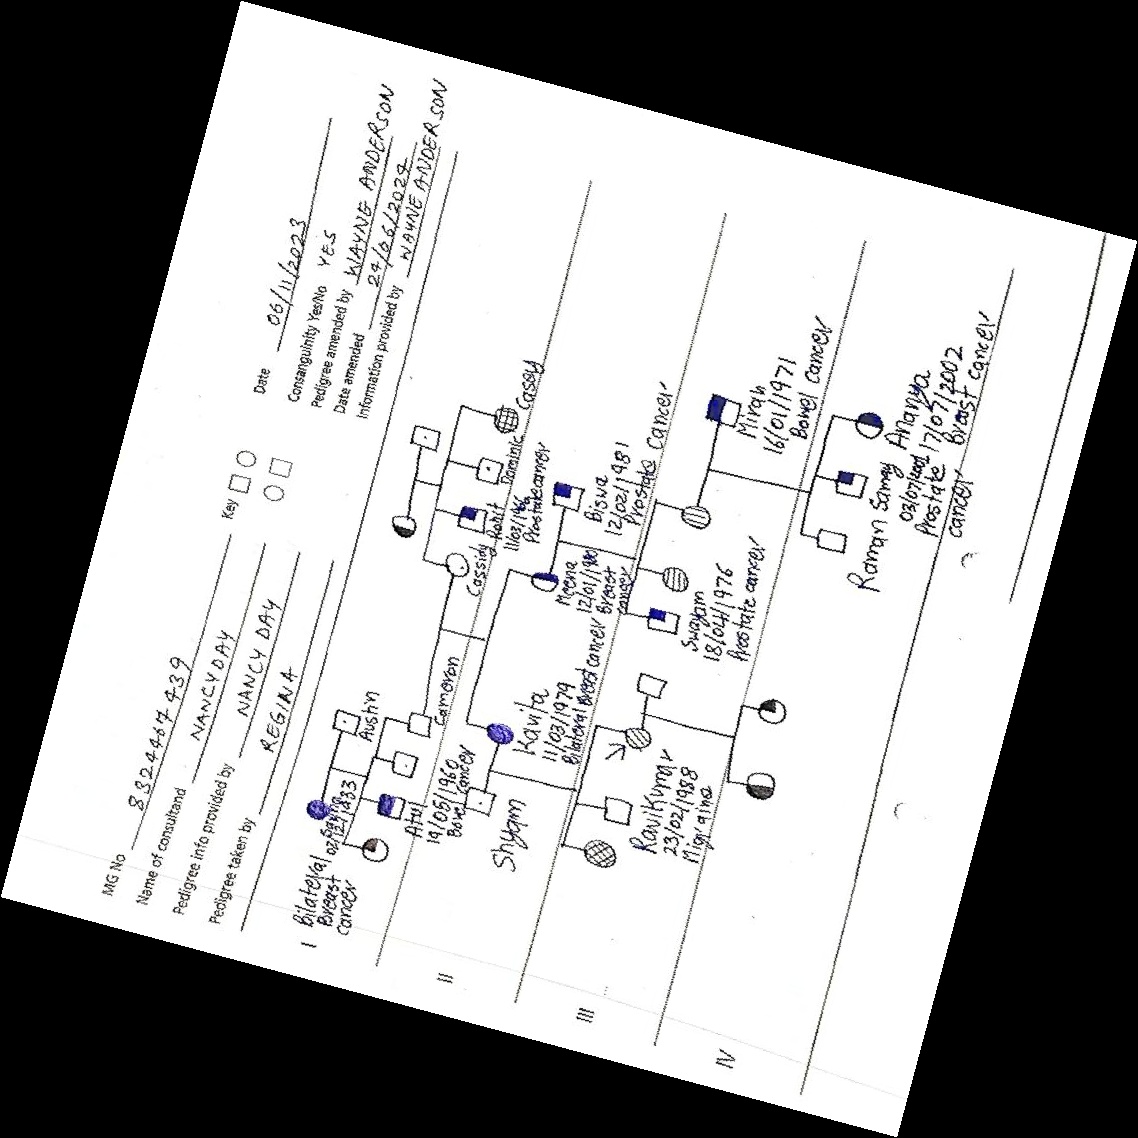 MG No 8324467439
Name of consultand NANCY DAY
Pedigree info provided by NANCY DAY
Pedigree taken by REGINA
Key
Date 06/11/2023
Consanguinity Yes/No YES
Pedigree amended by WAYNE ANDERSON
Date amended 24/06/2024
Information provided by WAYNE ANDERSON
I
Bilateral
Breast
cancer
Austin
II
Atul
19/05/1960
Bowel cancer
Cameron
Cassidy
Rohit
Prostate cancer
Dominic
Casey
III
Shyam
Kavita
11/03/1979
Bilateral Breast cancer
Meena
12/01/1980
Breast
cancer
Biswa
12/02/1981
Prostate cancer
IV
Ravikumar
23/02/1988
Migraine
Swayam
18/04/1976
Prostate cancer
Mirah
16/01/1971
Bowel cancer
Raman
Samay
03/07/2001
Prostate
cancer
Ananya
17/07/2002
Breast cancer